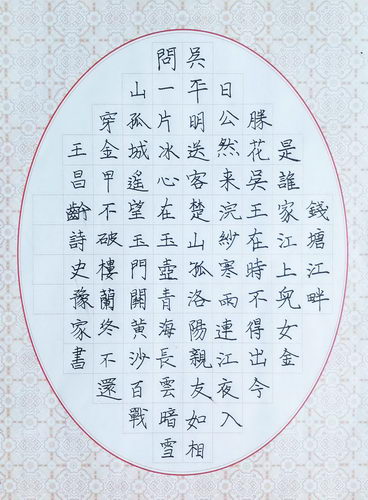 錢塘江畔
是誰家江上兒女金
勝花吳王在時不得出今
日公然来浣紗寒雨連江夜入
吳平明送客楚山孤洛陽親友如相
問一片冰心在玉壺青海長雲暗雪
山孤城遙望玉門關黄沙百戰
穿金甲不破樓蘭冬不還
王昌齡詩史豫家書